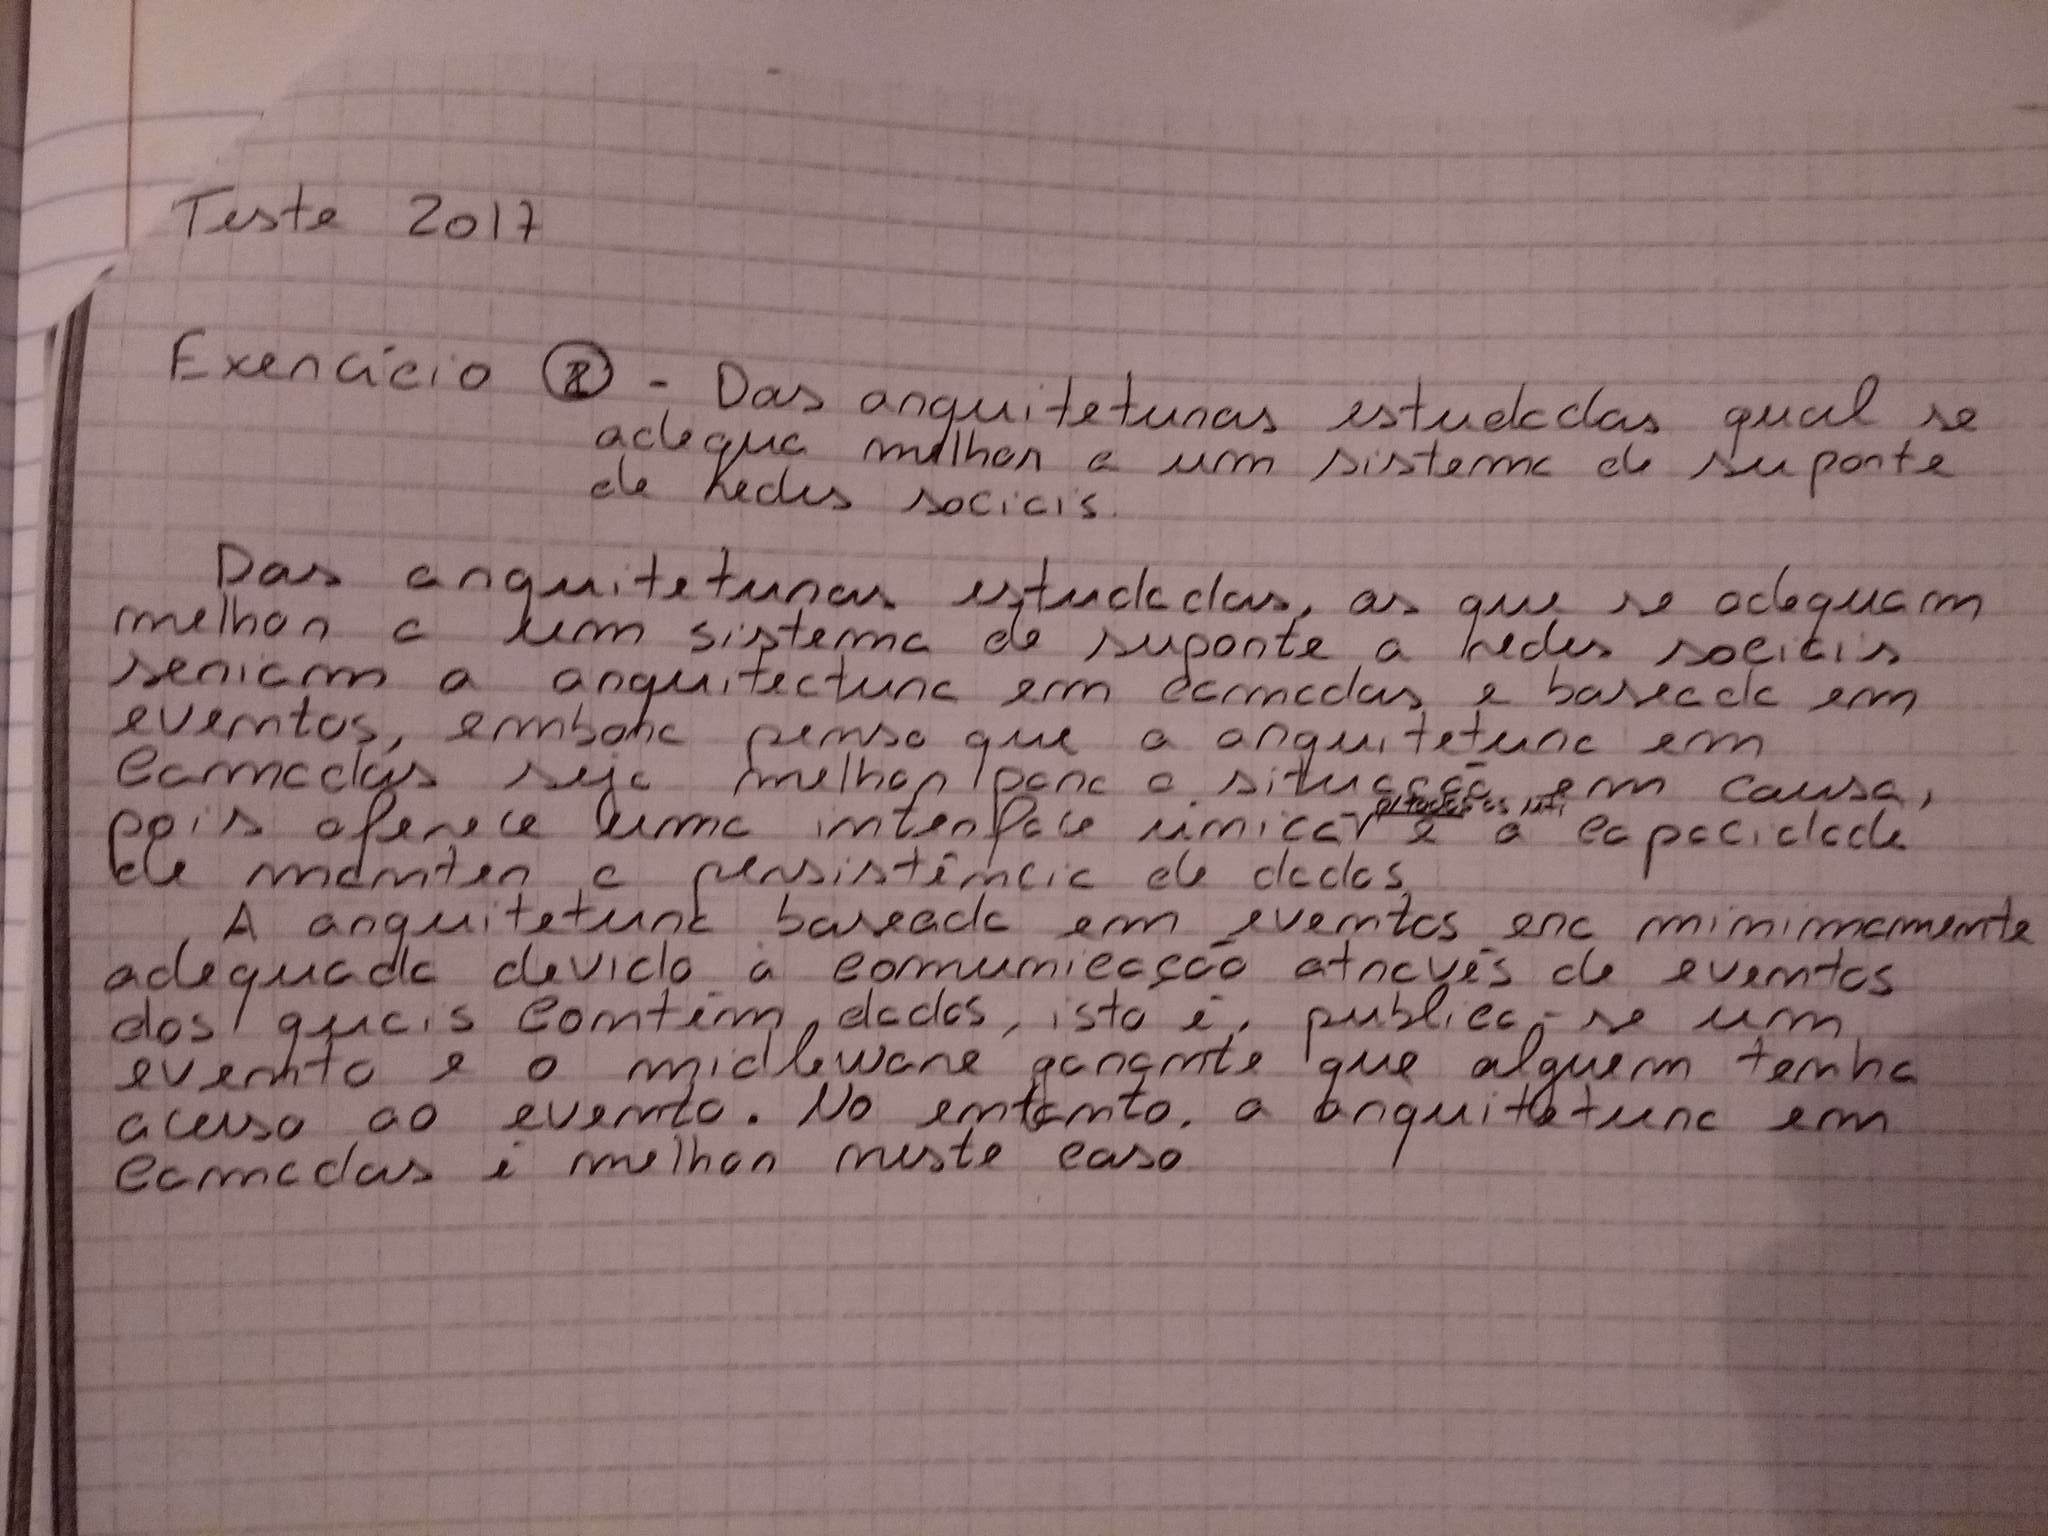 Teste 2017
Exercício ② - Das arquiteturas estudadas qual se
adequa melhor a um sistema de suporte
de redes sociais.
Das arquiteturas estudadas, as que se adequam
melhor a um sistema de suporte a redes sociais
seriam a arquitectura em camadas e baseada em
eventos, embora penso que a arquitetura em
camadas seja melhor para a situação em causa,
pois oferece uma interface única e a capacidade
de manter a persistência de dados
A arquitetura baseada em eventos era minimamente
adequada devido à comunicação através de eventos
dos quais contêm dados, isto é, publica-se um
evento e o midleware garante que alguem tenha
acesso ao evento. No entanto, a arquitetura em
camadas é melhor neste caso